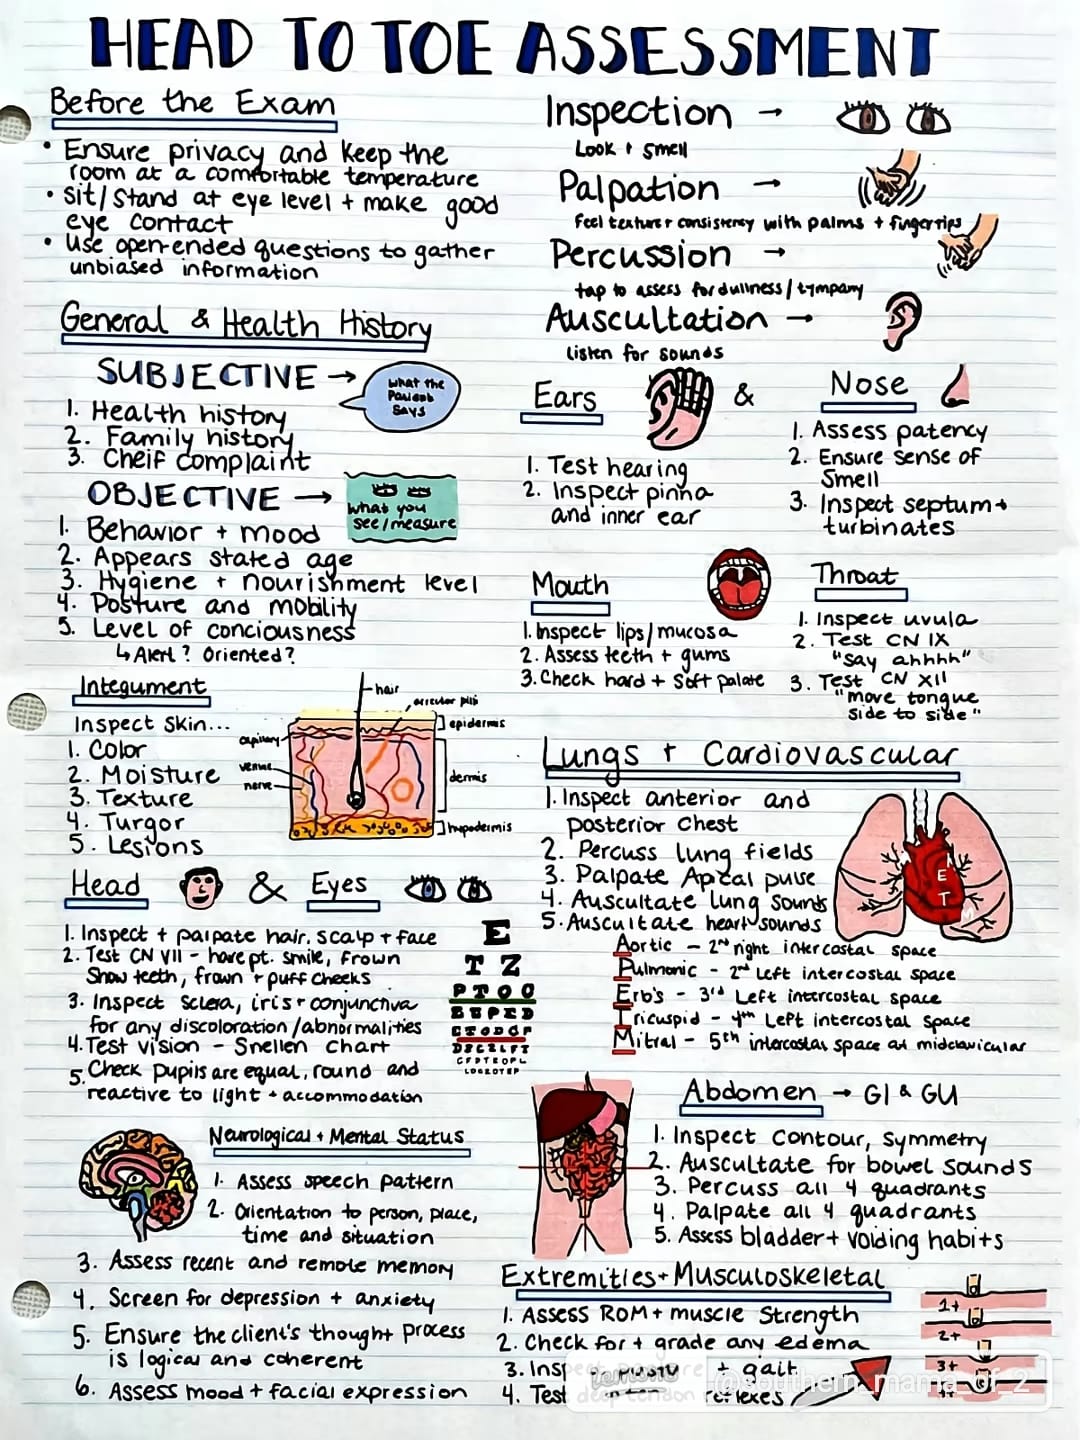 HEAD TO TOE ASSESSMENT
Before the Exam
• Ensure privacy and keep the
room at a comfortable temperature
• Sit/Stand at eye level + make good
eye contact
• Use open-ended questions to gather
unbiased information
General & Health History
SUBJECTIVE →
what the
Patient
says
1. Health history
2. Family history
3. Cheif complaint
OBJECTIVE →
what you
see/measure
1. Behavior + mood
2. Appears stated age
3. Hygiene + nourishment level
4. Posture and mobility
5. Level of conciousness
↳ Alert? Oriented?
Integument
Inspect Skin...
1. Color
2. Moisture
3. Texture
4. Turgor
5. Lesions
hair
arrector pili
epidermis
capillary
venule
nerve
dermis
hypodermis
Head & Eyes
1. Inspect + palpate hair, scalp + face
2. Test CN VII - have pt. smile, frown
Show teeth, frown + puff cheeks
3. Inspect sclera, iris + conjunctiva
for any discoloration/abnormalities
4. Test vision - Snellen Chart
5. Check pupils are equal, round and
reactive to light + accommodation
E
T Z
Neurological + Mental Status
1. Assess speech pattern
2. Orientation to person, place,
time and situation
3. Assess recent and remote memory
4. Screen for depression + anxiety
5. Ensure the client's thought process
is logical and coherent
6. Assess mood + facial expression
Inspection →
Look + Smell
Palpation →
Feel texture + consistency with palms + fingertips
Percussion →
tap to assess for dullness/tympany
Auscultation →
listen for sounds
Ears &
1. Test hearing
2. Inspect pinna
and inner ear
Nose
1. Assess patency
2. Ensure sense of
Smell
3. Inspect septum +
turbinates
Mouth
1. Inspect lips/mucosa
2. Assess teeth + gums
3. Check hard + soft palate
Throat
1. Inspect uvula
2. Test CN IX
"say ahhhh"
3. Test CN XII
"move tongue
side to side"
Lungs + Cardiovascular
1. Inspect anterior and
posterior chest
2. Percuss lung fields
3. Palpate Apical pulse
4. Auscultate lung sounds
5. Auscultate heart sounds
Aortic - 2nd right intercostal space
Pulmonic - 2nd Left intercostal space
Erb's - 3rd Left intercostal space
Tricuspid - 4th Left intercostal space
Mitral - 5th intercostal space at midclavicular
A
P
E
T
M
Abdomen → GI & GU
1. Inspect contour, symmetry
2. Auscultate for bowel sounds
3. Percuss all 4 quadrants
4. Palpate all 4 quadrants
5. Assess bladder + voiding habits
Extremities + Musculoskeletal
1. Assess ROM + muscle strength
2. Check for + grade any edema
3. Inspect posture + gait
4. Test deep tendon reflexes
1+
2+
3+
4+
@southern_mama_of_2